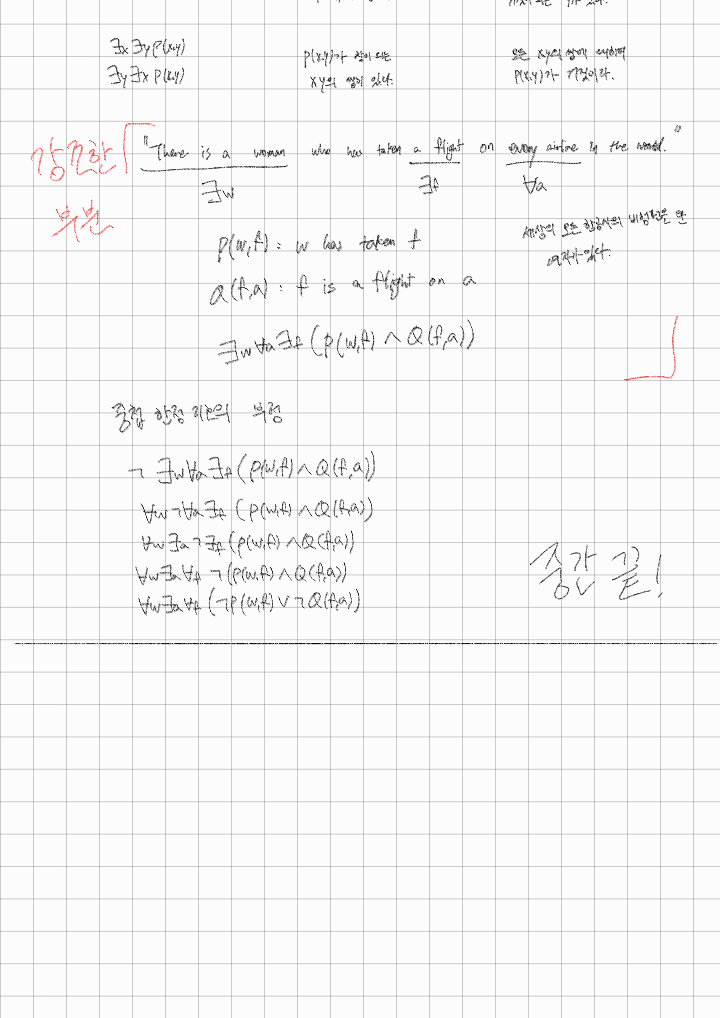 ∃x∃y P(x,y)
∃y∃x P(x,y)
P(x,y)가 참이 되는
x,y의 쌍이 있다.
모든 x,y의 쌍에 대하여
P(x,y)가 거짓이다.
강조한
부분
"There is a woman who has taken a flight on every airline in the world."
∃w ∃f ∀a
P(w,f) : w has taken f
Q(f,a) : f is a flight on a
세상의 모든 항공사의 비행편을 탄
여자가 있다.
∃w∀a∃f (P(w,f) ∧ Q(f,a))
중첩 한정 의 부정
¬ ∃w∀a∃f (P(w,f) ∧ Q(f,a))
∀w¬∀a∃f (P(w,f) ∧ Q(f,a))
∀w∃a¬∃f (P(w,f) ∧ Q(f,a))
∀w∃a∀f ¬(P(w,f) ∧ Q(f,a))
∀w∃a∀f (¬P(w,f) ∨ ¬Q(f,a))
중간 끝!